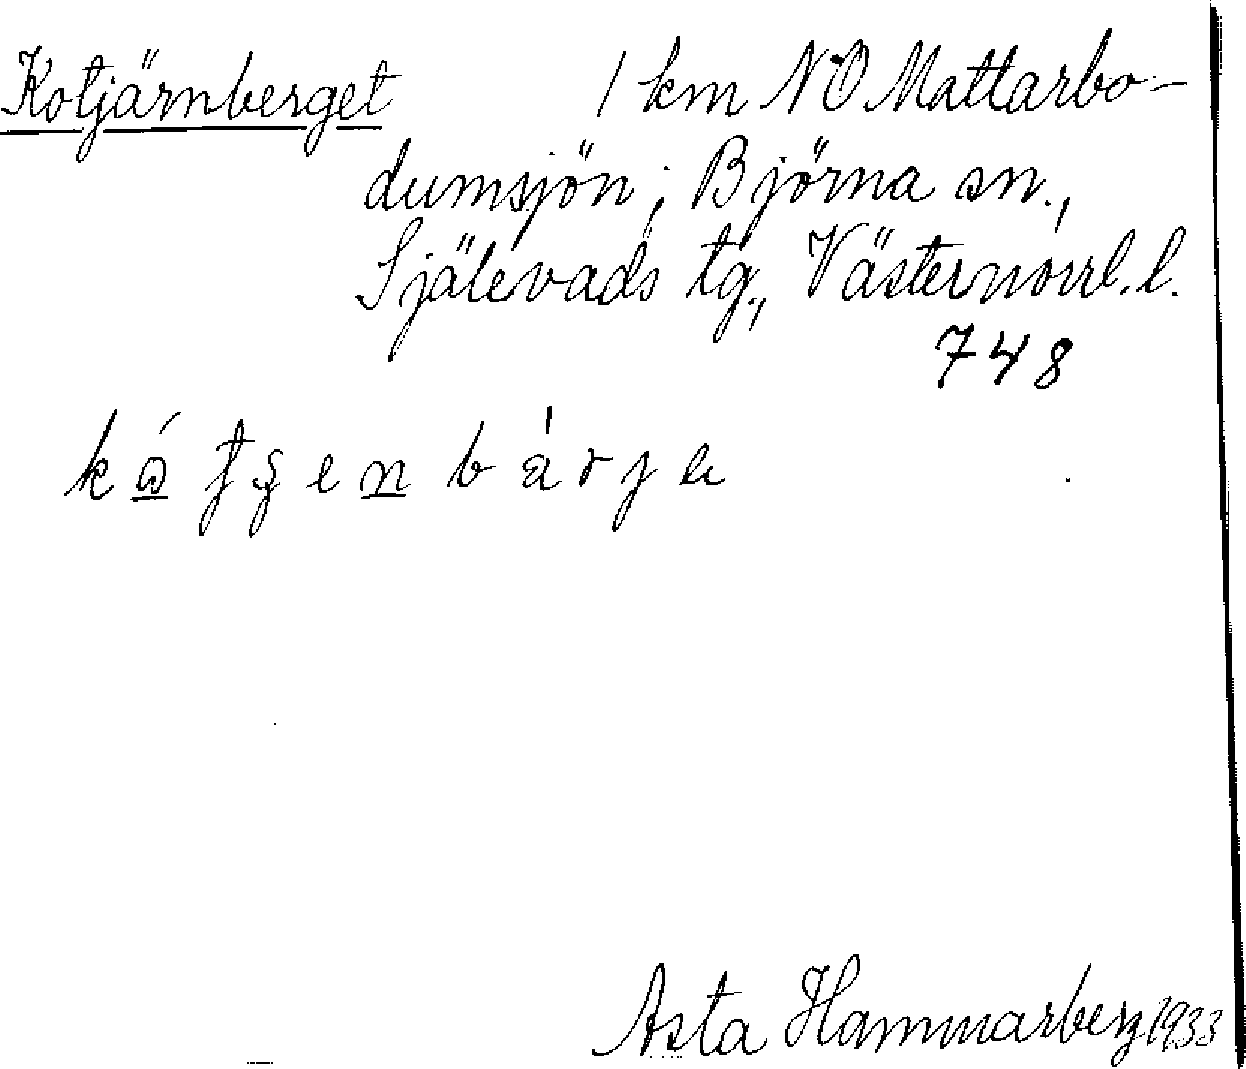 Kotjärnberget 1 km NO Mattarbo-
dumsjön; Björna sn.,
Själevads tg., Västernorrl. l.
748
Asta Hammarberg 1933